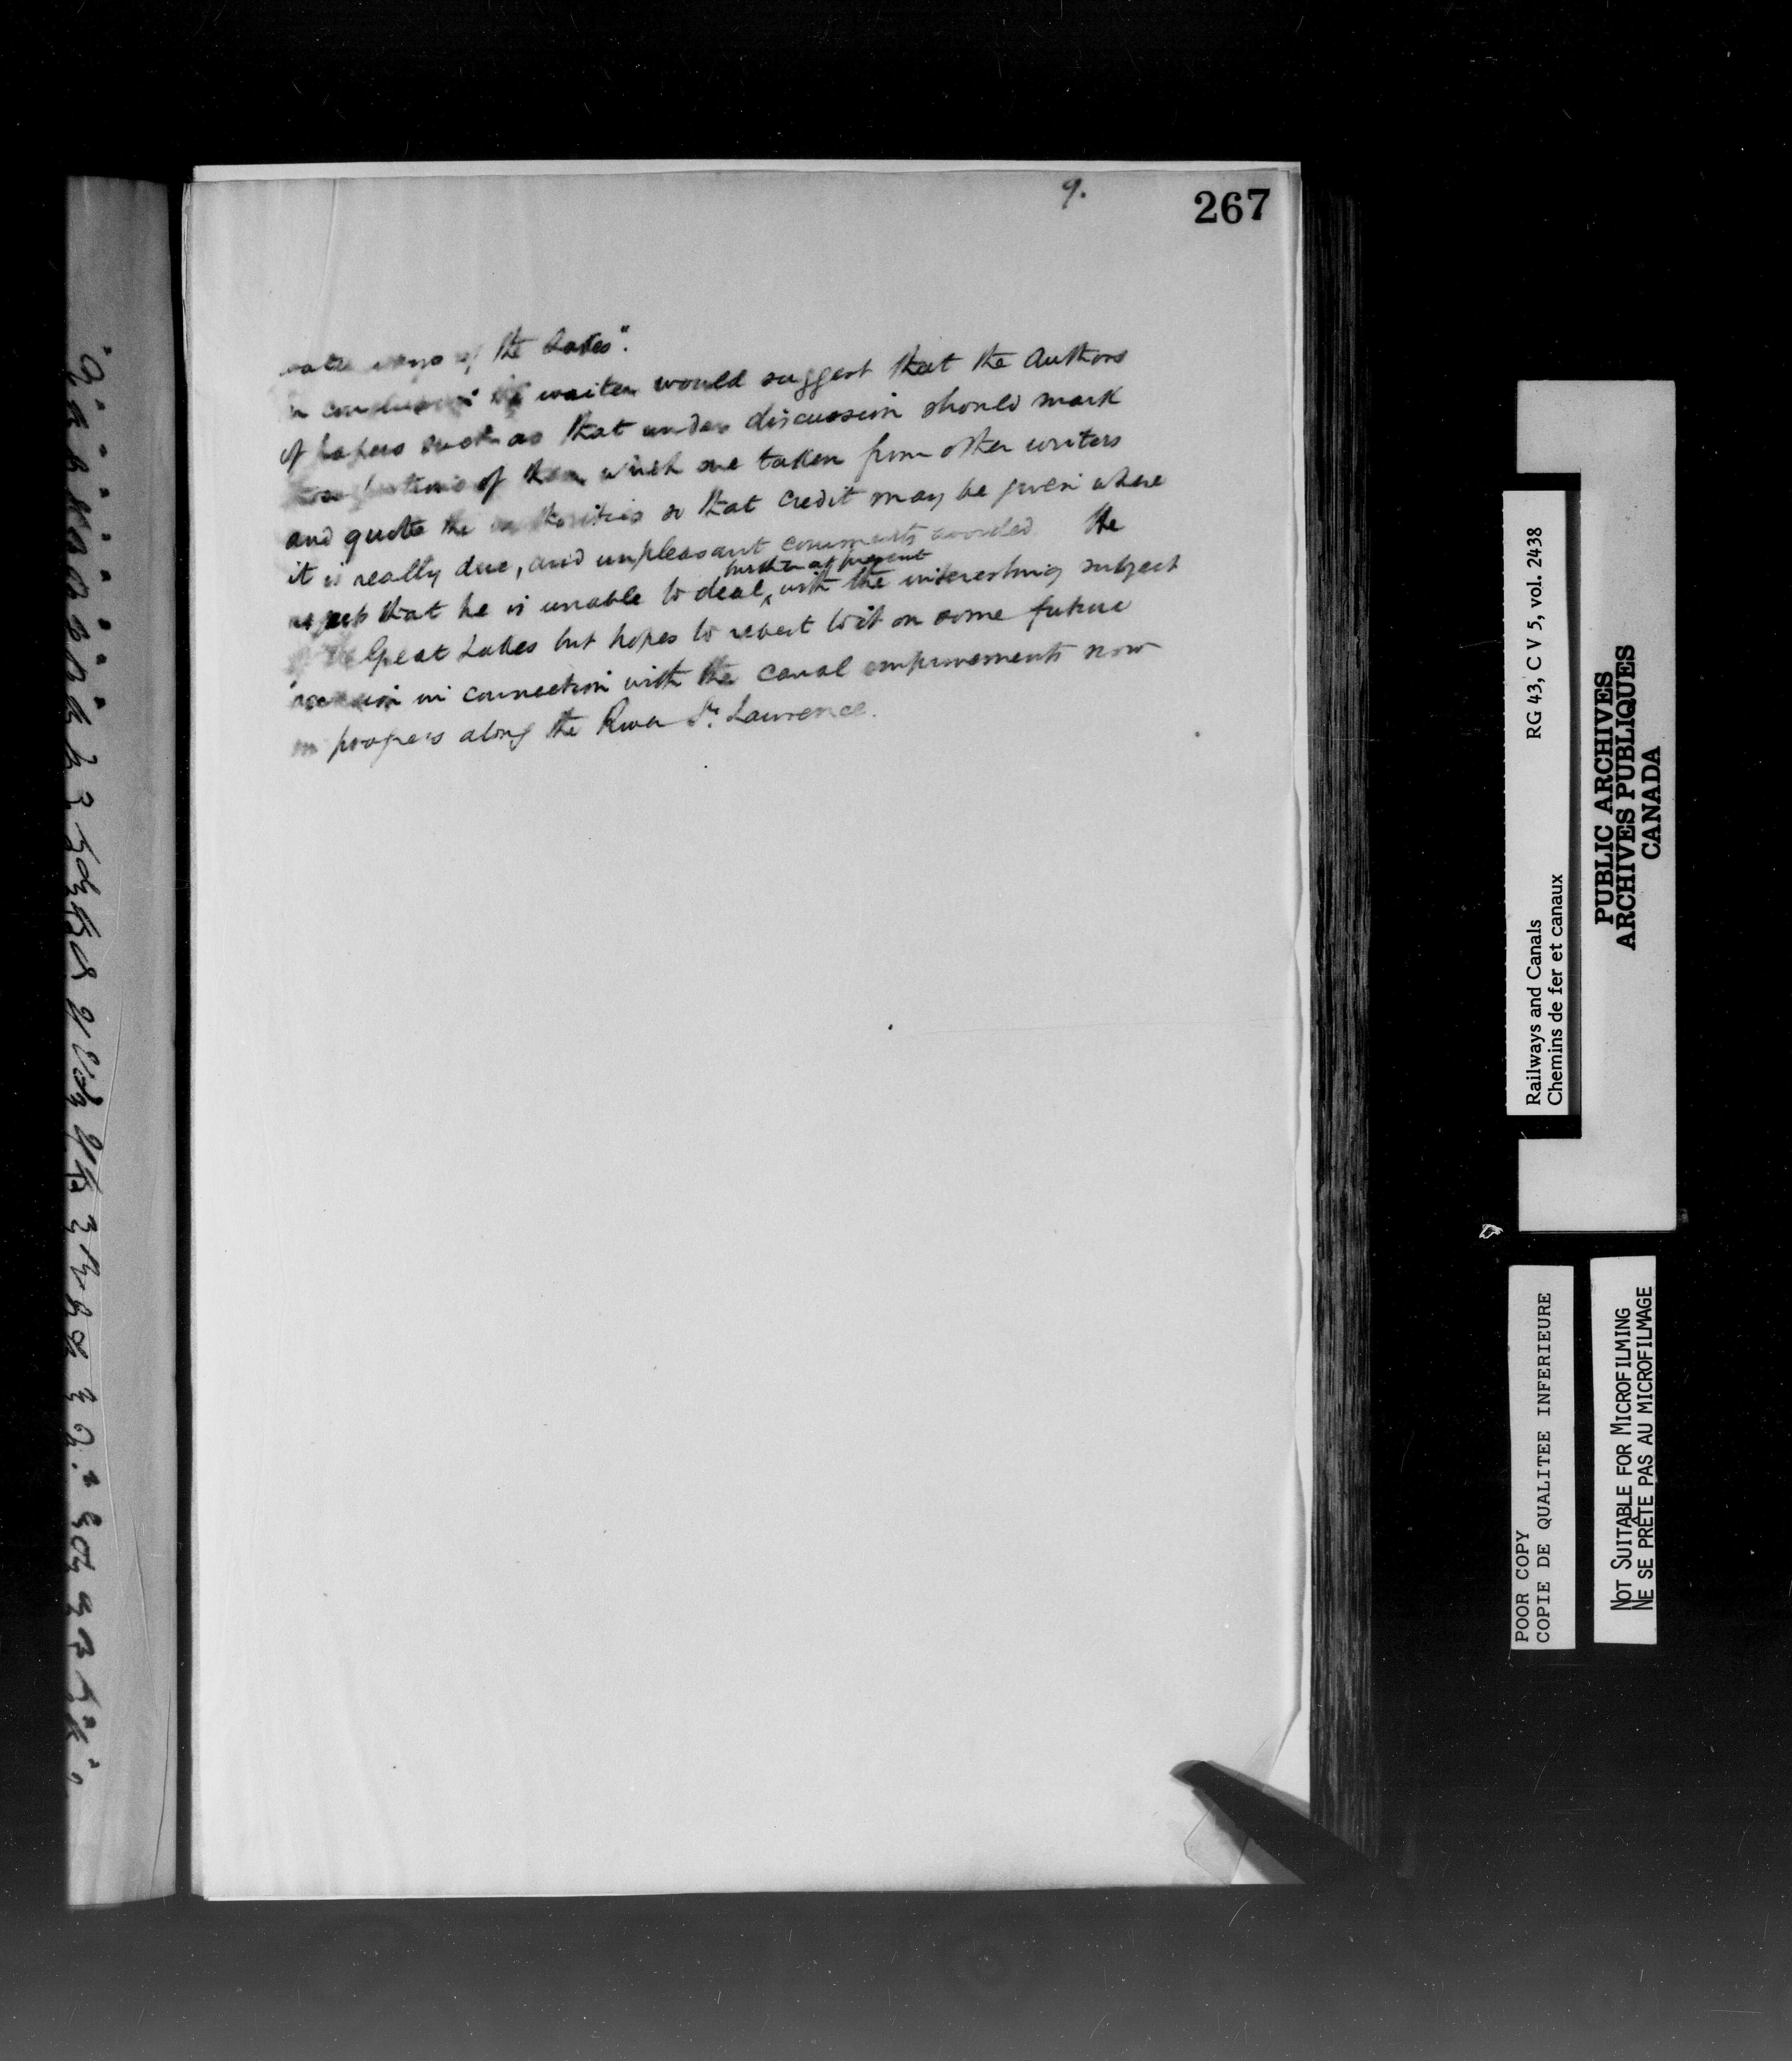 9.
267
water ways of the Lakes".
In conclusion the writer would suggest that the Authors
of papers such as that under discussion should mark
those portions of them which are taken from other writers
and quote the authorities so that credit may be given where
it is really due, and unpleasant comments avoided. He
regrets that he is unable to deal further at present with the interesting subject
of the Great Lakes but hopes to revert to it on some future
occasion in connection with the canal improvements now
in progress along the River St. Lawrence.
Railways and Canals RG 43, C V 5, vol. 2438
Chemins de fer et canaux
PUBLIC ARCHIVES
ARCHIVES PUBLIQUES
CANADA
POOR COPY
COPIE DE QUALITEE INFERIEURE
NOT SUITABLE FOR MICROFILMING
NE SE PRÊTE PAS AU MICROFILMAGE